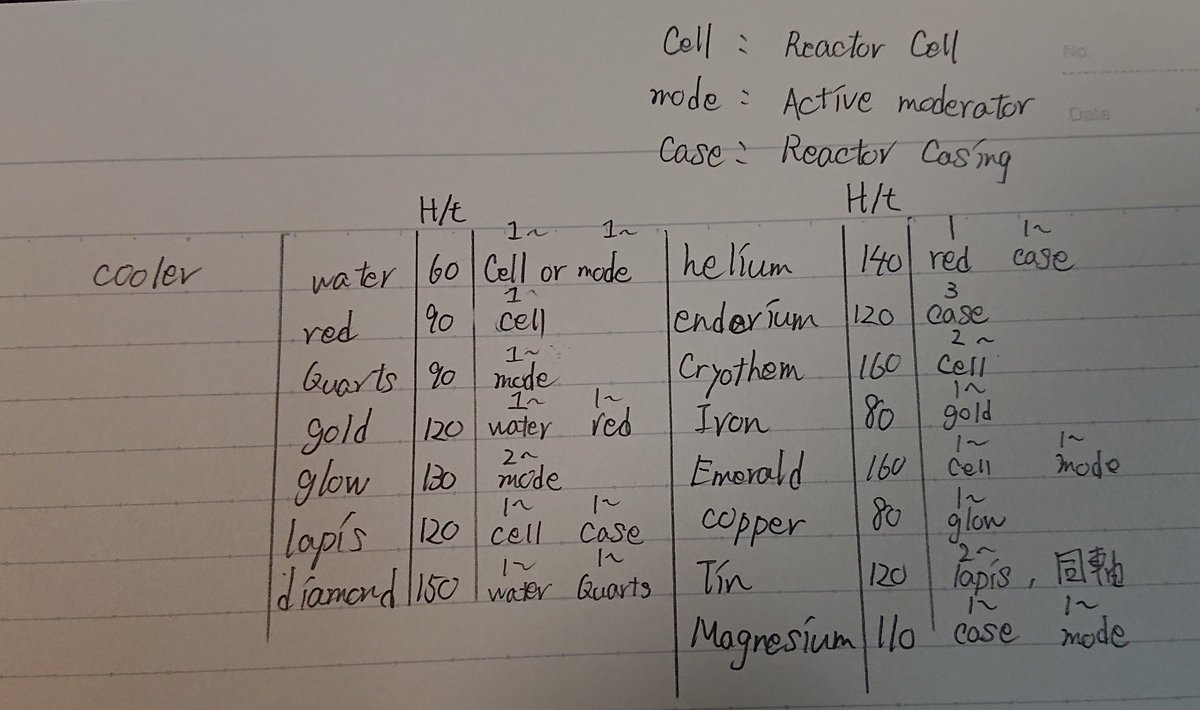 Cell : Reactor Cell
No.
mode : Active moderator
Date
Case : Reactor Casing
H/t H/t
1~ 1~ 1 1~
cooler water 60 Cell or mode helium 140 red case
1 3
red 90 cell enderium 120 case
1~ 2~
Quarts 90 mode Cryothem 160 cell
1~ 1~ 1~
gold 120 water red Iron 80 gold
2~ 1~ 1~
glow 130 mode Emerald 160 cell mode
1~ 1~ 1~
lapis 120 cell case copper 80 glow
1~ 1~ 2~
diamond 150 water Quarts Tin 120 lapis, 同軸
1~ 1~
Magnesium 110 case mode